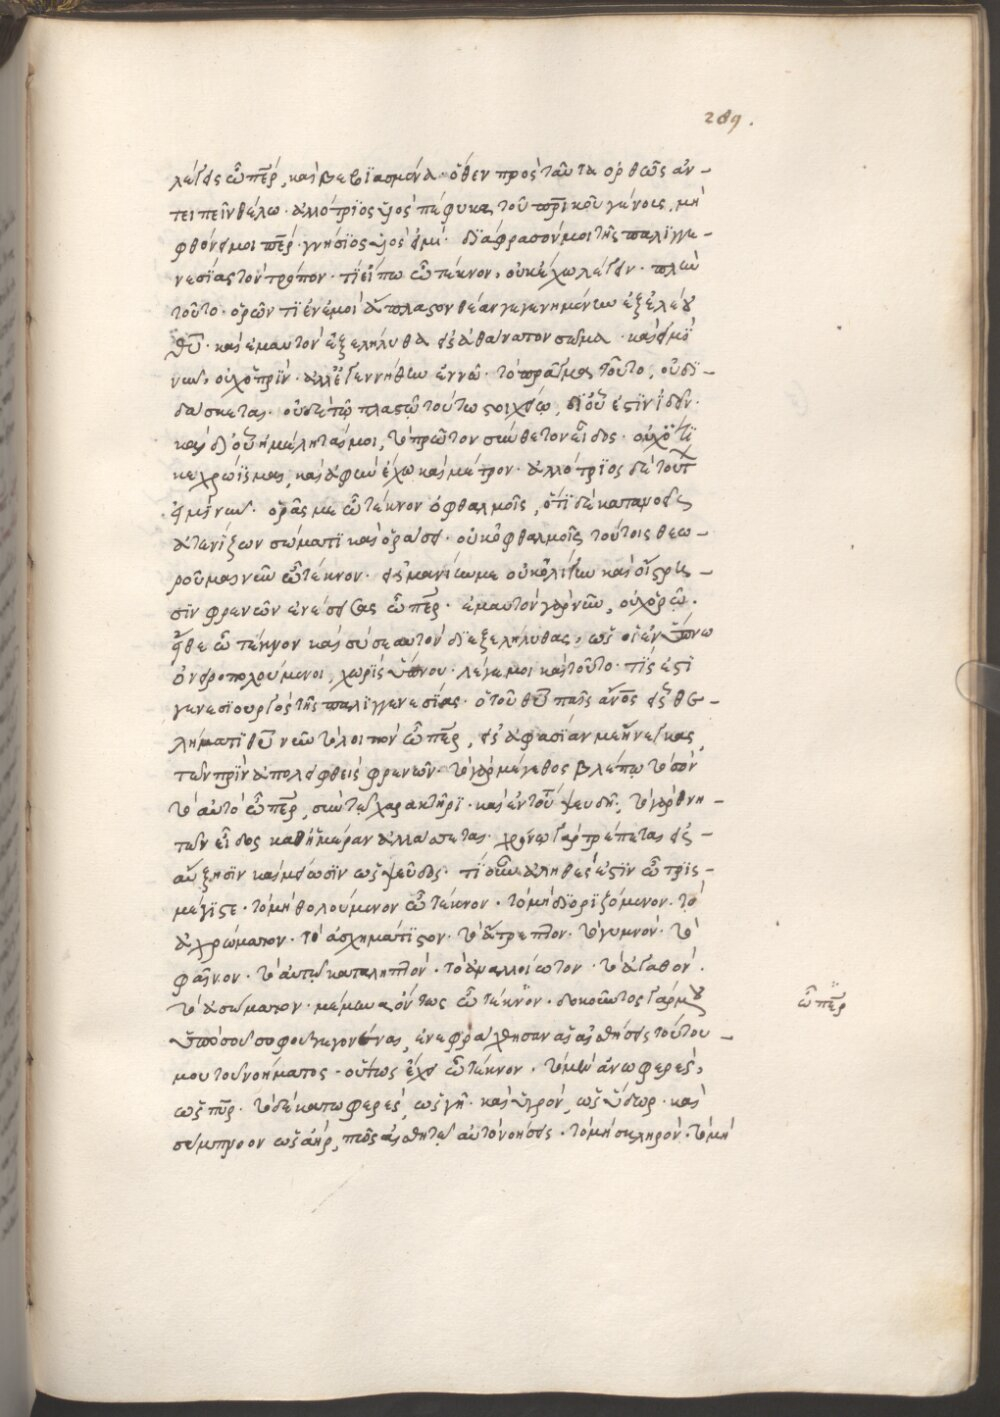 289.
λέγεις ὦ περ, καὶ βεβϊασμένα· ὅθεν πρὸς ταῦτα ὀρθῶς ἀν-
τειπεῖν θέλω· ἀλλότρϊος ϋἱὸς πέφυκα τοῦ πρικοῦ γένους, μὴ
φθόνει μοι περ· γνήσϊος ϋἱὸς εἰμί· δϊάφρασόν μοι τῆς παλϊγγε-
νεσίας τὸν τρόπον· τί εἴπω ὦ τέκνον, οὐκ ἔχω λέγειν· πλὴν
τοῦτο· ὁρῶν τϊ ἐν ἐμοὶ ἄπλαστον θέαν γεγενημένην ἐξ ἐλέου
θυ· καὶ ἐμαυτὸν ἐξελήλυθα εἰς ἀθάνατον σῶμα· καὶ εἰμϊ
νῦν, οὐχ ὁ πρίν· ἀλλ' ἐγεννήθην ἐν νῶ· τὸ πρᾶγμα τοῦτο, οὐ δϊ-
δάσκεται· οὐδὲ τῷ πλαστῶ τούτω στοιχείω, δϊ' οὗ ἐστϊν ἰδεῖν·
καὶ δϊ' οὗ ἠμέληταί μοι, τὸ πρῶτον σύνθετον εἶδος· οὐχ ὅτϊ
κεχρώϊσμαι, καὶ ἁφὴν ἔχω καὶ μέτρον· ἀλλότρϊος δὲ τούτ
εἰμὶ νῦν· ὁρᾶς με ὦ τέκνον ὀφθαλμοῖς, ὅτϊ δὲ κατανοεῖς
ἀτενίζων σώματϊ καὶ ὁράσει· οὐκ ὀφθαλμοῖς τούτοις θεω-
ροῦμαι νῦν ὦ τέκνον· εἰς μανίαν με οὐκ ὀλίγην καὶ οἴστρη-
σϊν φρενῶν ἐνέσεισας ὦ περ· ἐμαυτὸν γὰρ νῦν, οὐχ ὁρῶ·
εἴθε ὦ τέκνον καὶ σύ σεαυτὸν δϊεξελήλυθας, ὡς οἱ ἐν ὕπνω
ὀνειροπολούμενοι, χωρὶς ὕπνου· λέγε μοι καὶ τοῦτο· τίς ἐστϊ
γενεσϊουργὸς τῆς παλϊγγενεσίας· ὁ τοῦ θυ παῖς ἄνος εἷς θε-
λήματϊ θυ νῦν τὸ λοιπὸν ὦ περ, εἰς ἀφασίαν με ἤνεγκας,
τῶν πρὶν ἀπολειφθεὶς φρενῶν· τὸ γὰρ μέγεθος βλέπω τὸ σὸν
τὸ αὐτὸ ὦ περ, σὺν τῶ χαρακτῆρϊ· καὶ ἐν τούτ ψεύδη· τὸ γὰρ θνη-
τῶν εἶδος καθ' ἡμέραν ἀλλάσσεται· χρόνω γὰρ τρέπεται εἰς
αὔξησϊν καὶ μείωσϊν ὡς ψεῦδος· τί οὖν ἀληθές ἐστϊν ὦ τρὶς-
μέγϊστε· τὸ μὴ θολούμενον ὦ τέκνον· τὸ μὴ δϊορϊζόμενον· τὸ
ἀχρώματον· τὸ ἀσχημάτϊστον· τὸ ἄτρεπτον· τὸ γυμνόν· τὸ
φαῖνον· τὸ αὐτῶ καταληπτόν· τὸ ἀναλλοίωτον· τὸ ἀγαθόν·
τὸ ἀσώματον· μέμηνα ὄντως ὦ τέκνον· δοκοῦντος γάρ μου
ὑπὸ σοῦ σοφοῦ γεγονέναι, ἐνεφράχθησαν αἱ αἰσθήσεις τούτου-
μου τοῦ νοήματος· οὕτως ἔχει ὦ τέκνον· τὸ μὲν ἀνωφερές,
ὡς πῦρ· τὸ δὲ κατωφερές, ὡς γῆ· καὶ ὑγρόν, ὡς ὕδωρ· καὶ
σύμπνοον ὡς ἀήρ, πῶς αἰσθητῶ αὐτὸ νοήσεις· τὸ μὴ σκληρόν· τὸ μὴ
ὦ περ